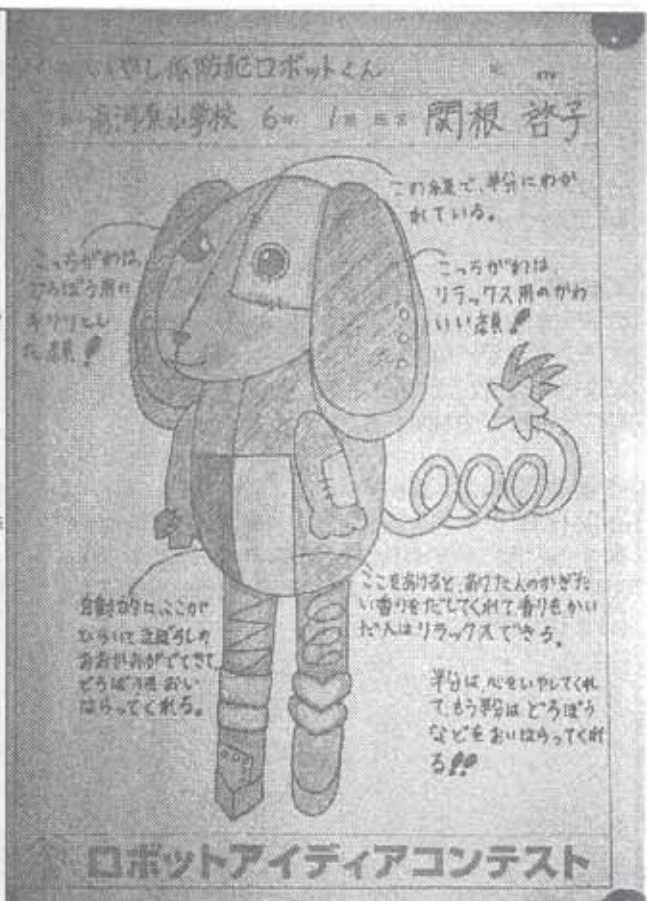 いやし係防犯ロボットくん
南河原小学校 6年 1組 関根 啓子
この線で、半分にわか
れている。
こっちがわは、
どろぼう用の
キリリとし
た顔!
こっちがわは、
リラックス用のかわ
いい顔!
自動的に、ここが
ひらいて
おおかみがでてきて、
どろぼうをおい
はらってくれる。
ここをあけると、あけた人のかぎた
い香りをだしてくれて、香りをかい
だ人はリラックスできる。
半分は、心をいやしてくれ
て、もう半分は、どろぼう
などをおいはらってくれ
る!!
ロボットアイディアコンテスト